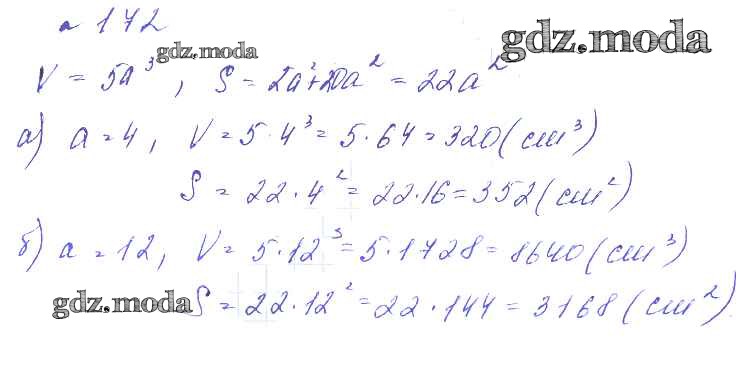 № 172
gdz.moda
gdz.moda
V = 5a³, S = 2a²+20a² = 22a²
а) a = 4, V = 5·4³ = 5·64 = 320 (см³)
S = 22·4² = 22·16 = 352 (см²)
б) a = 12, V = 5·12³ = 5·1728 = 8640 (см³)
gdz.moda S = 22·12² = 22·144 = 3168 (см²)